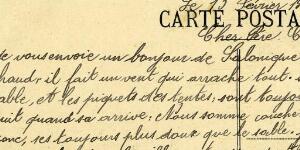 le 13 Février 19
CARTE POSTA
Cher Père
te vous envoie un bonjour de Salonique
haud, il fait un vent qui arrache tout.
able, et les piquets des tentes, sont toujou
uit quand sa arrive. Nous somme couche
onc, ses toujours plus doux que le sable.